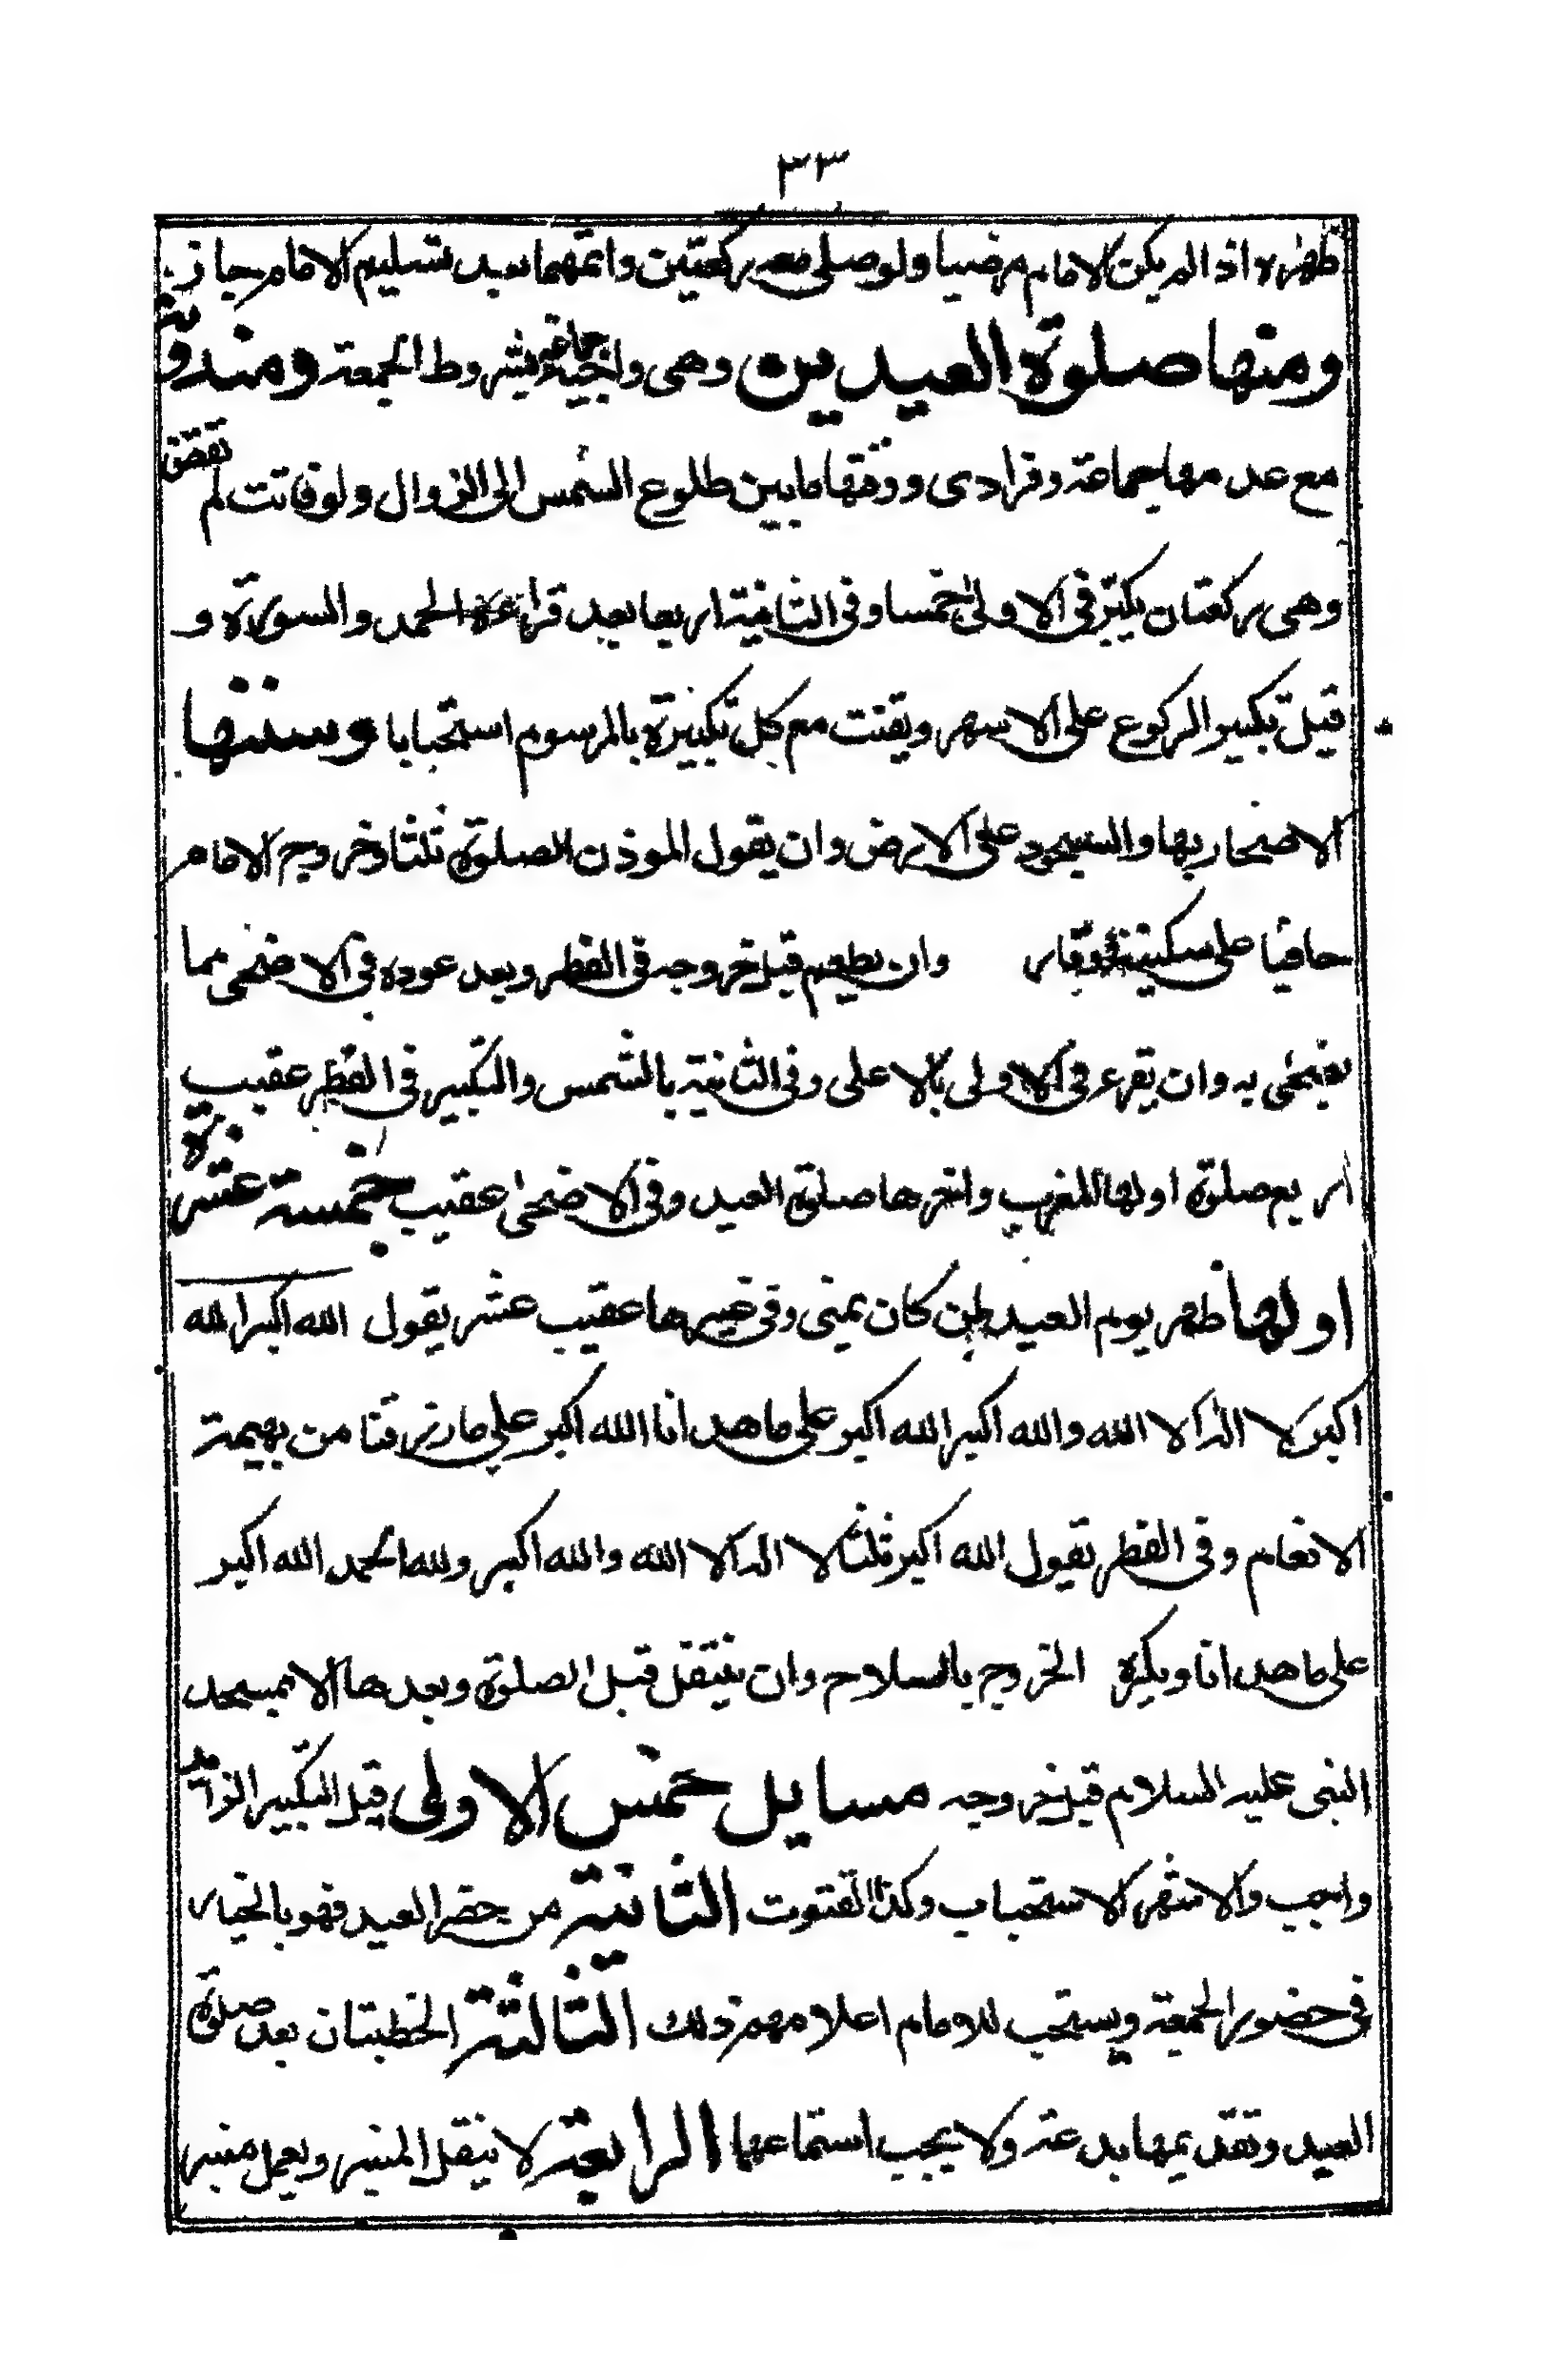 ٣٣
ظهره اذا لم يكن الامام مرضيا ولو صلى معه ركعتين واتمهما بعد تسليم الامام جاز
ومنها صلوة العيدين وهى واجبة جماعة بشروط الجمعة ومندوبة
مع عدمها جماعة وفرادى ووقتها مابين طلوع الشمس الى الزوال ولو فاتت لم تقض
وهى ركعتان يكبّر فى الاولى خمسا وفى الثانية اربعا بعد قراءة الحمد والسورة و
قبل تكبير الركوع على الاسهر ويقنت مع كل تكبيرة بالمرسوم استحبابا وسننها
الاصحار بها والسجود على الارض وان يقول الموذن الصلوة ثلثا وخروج الامام
حافيا على سكينة ووقار وان يطعم قبل خروجه فى الفطر وبعد عوده فى الاضحى مما
يضحى به وان يقرء فى الاولى بالاعلى وفى الثانية بالشمس والتكبير فى الفطر عقيب
اربع صلوة اولها المغرب واخرها صلوة العيد وفى الاضحى عقيب خمسة عشرة
اولها ظهر يوم العيد لمن كان بمنى وفى غيرها عقيب عشر يقول الله اكبر الله
اكبر لا اله الا الله والله اكبر الله اكبر على ما هدانا الله اكبر على ما رزقنا من بهيمة
الانعام وفى الفطر تقول الله اكبر ثلثا لا اله الا الله والله اكبر ولله الحمد الله اكبر
على ما هدانا ويكره الخروج بالسلاح وان يتنفل قبل الصلوة وبعدها الا بمسجد
النبى عليه السلام قبل خروجه مسايل خمس الاولى قيل التكبير الزايد
واجب والاشهر الاستحباب وكذا القنوت الثانية من حضر العيد فهو بالخيار
فى حضور الجمعة ويستحب للامام اعلامهم ذلك الثالثة الخطبتان بعد صلوة
العيد وتقديمها بدعة ولا يجب استماعهما الرابعة لا ينقل المنبر ويعمل منبر